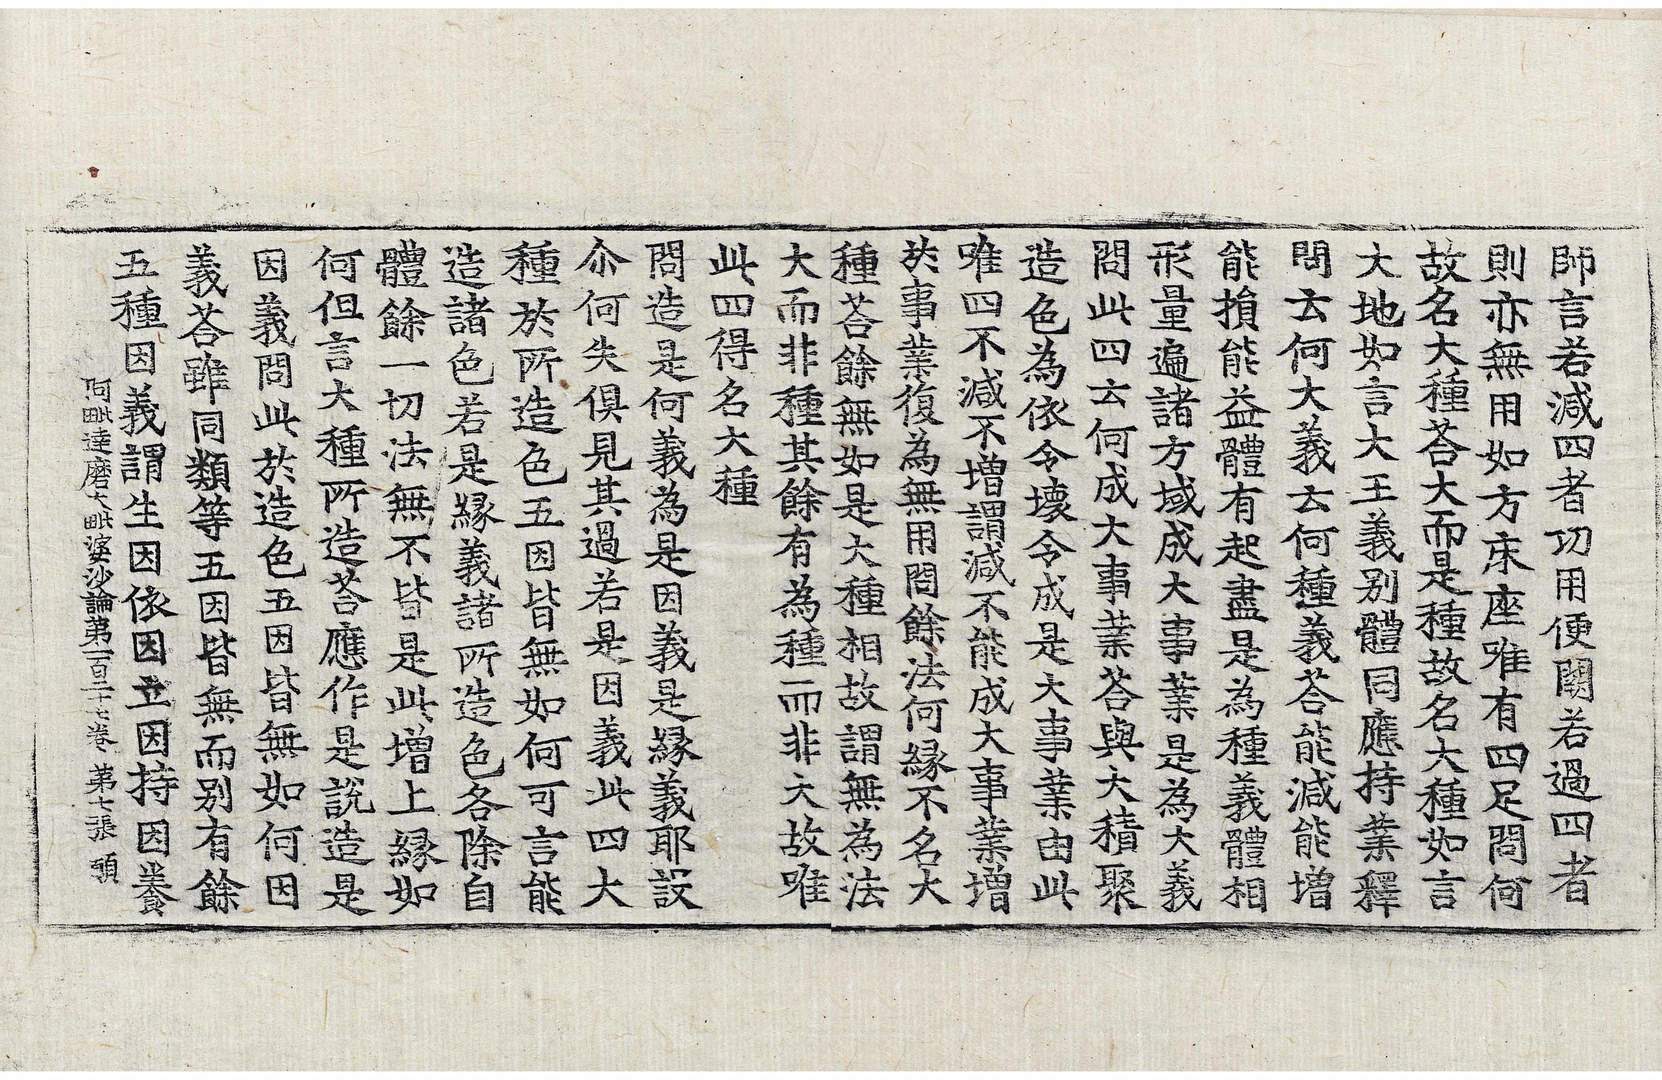 師言若減四者功用便闕若過四者
則亦無用如方床座唯有四足問何
故名大種荅大而是種故名大種如言
大地如言大王義别體同應持業釋
問云何大義云何種義荅能減能增
能損能益體有起盡是為種義體相
形量遍諸方域成大事業是為大義
問此四云何成大事業荅與大積聚
造色為依令壞令成是大事業由此
唯四不減不增謂減不能成大事業增
於事業復為無用問餘法何縁不名大
種荅餘無如是大種相故謂無為法
大而非種其餘有為種而非大故唯
此四得名大種
問造是何義為是因義是縁義耶設
尒何失俱見其過若是因義此四大
種於所造色五因皆無如何可言能
造諸色若是縁義諸所造色各除自
體餘一切法無不皆是此增上縁如
何但言大種所造荅應作是說造是
因義問此於造色五因皆無如何因
義荅雖同類等五因皆無而别有餘
五種因義謂生因依因立因持因養
阿毗達磨大毗婆沙論第一百二十七卷 第七張 頭